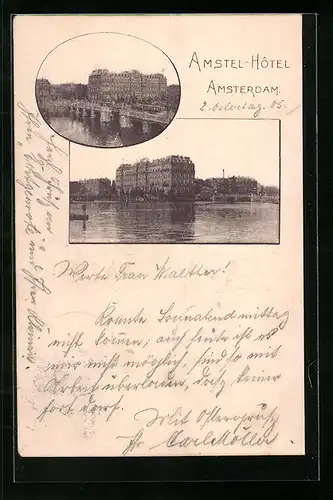 AMSTEL-HÔTEL
AMSTERDAM.
2. Ostertag. 05.
Werte Frau Walther!
Konnte Sonnabend mittag
nicht kommen; auch heute ist es
mir nicht möglich, sind so mit
Arbeit überladen, daß keiner
fort darf.
Mit Ostergruß
Ihr Carl Möller